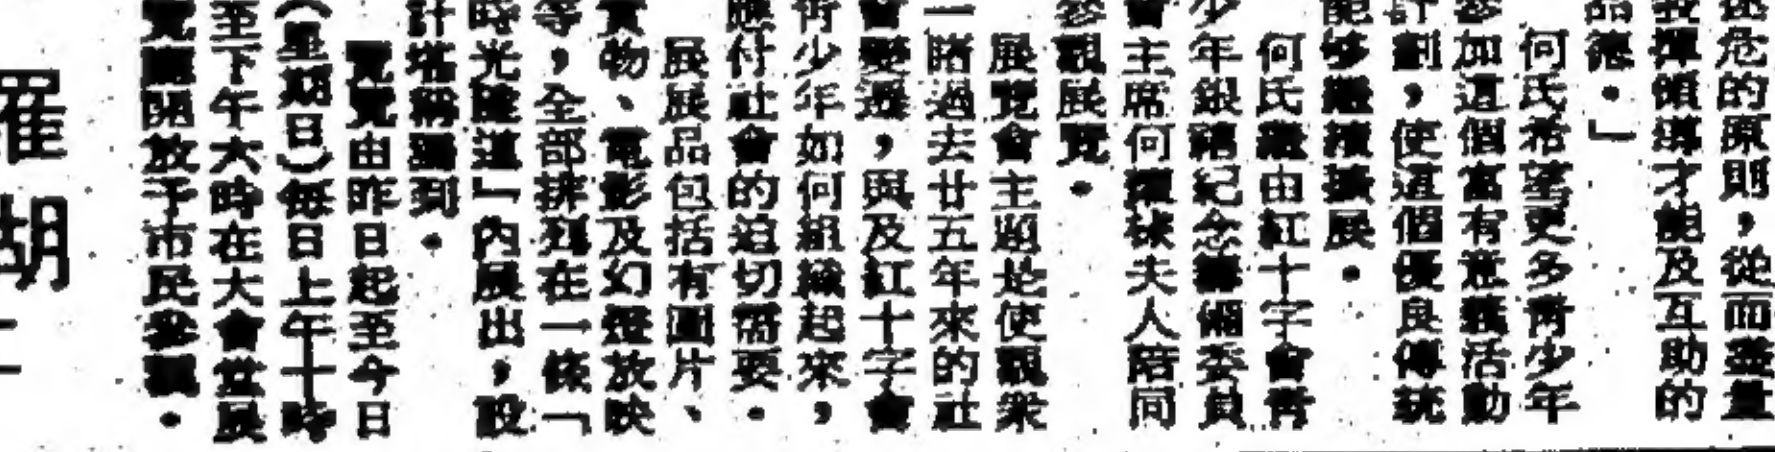 危的原則，從而盡量
發揮領導才能及互助的
品德。」
何氏希望更多靑少年
參加這個富有意義活動
計劃，使這個優良傳統
能够繼續擴展。
何氏繼由紅十字會靑
少年銀禧紀念籌備委員
會主席何 球夫人陪同
參觀展覽。
展覽會主題是使觀衆
一睹過去廿五年來的社
會變遷，與及紅十字會
靑少年如何組織起來，
應付社會的迫切需要。
展展品包括有圖片、
實物、電影及幻燈放映
等，全部排列在一條「
時光隧道」內展出，設
計堪稱獨到。
展覽由昨日起至今日
（星期日）每日上午十時
至下午六時在大會堂展
覽廳開放予市民參觀。
羅湖